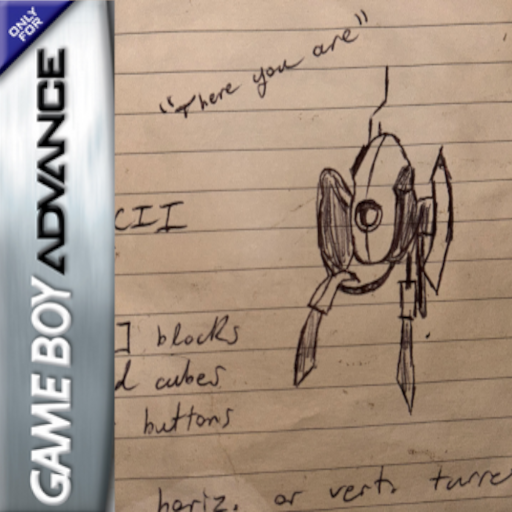 ONLY
FOR
GAME BOY ADVANCE
"There you are"
CII
] blocks
d cubes
buttons
horiz. or vert. turre